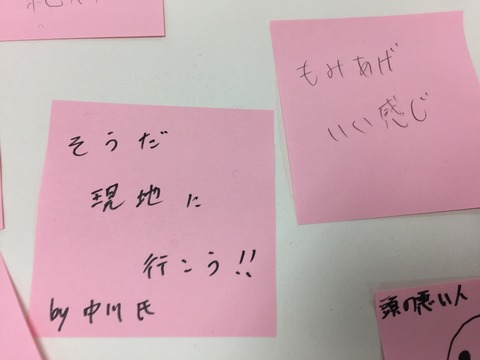 そうだ
現地に
行こう!!
by 中川氏
もみあげ
いい感じ
頭の悪い人